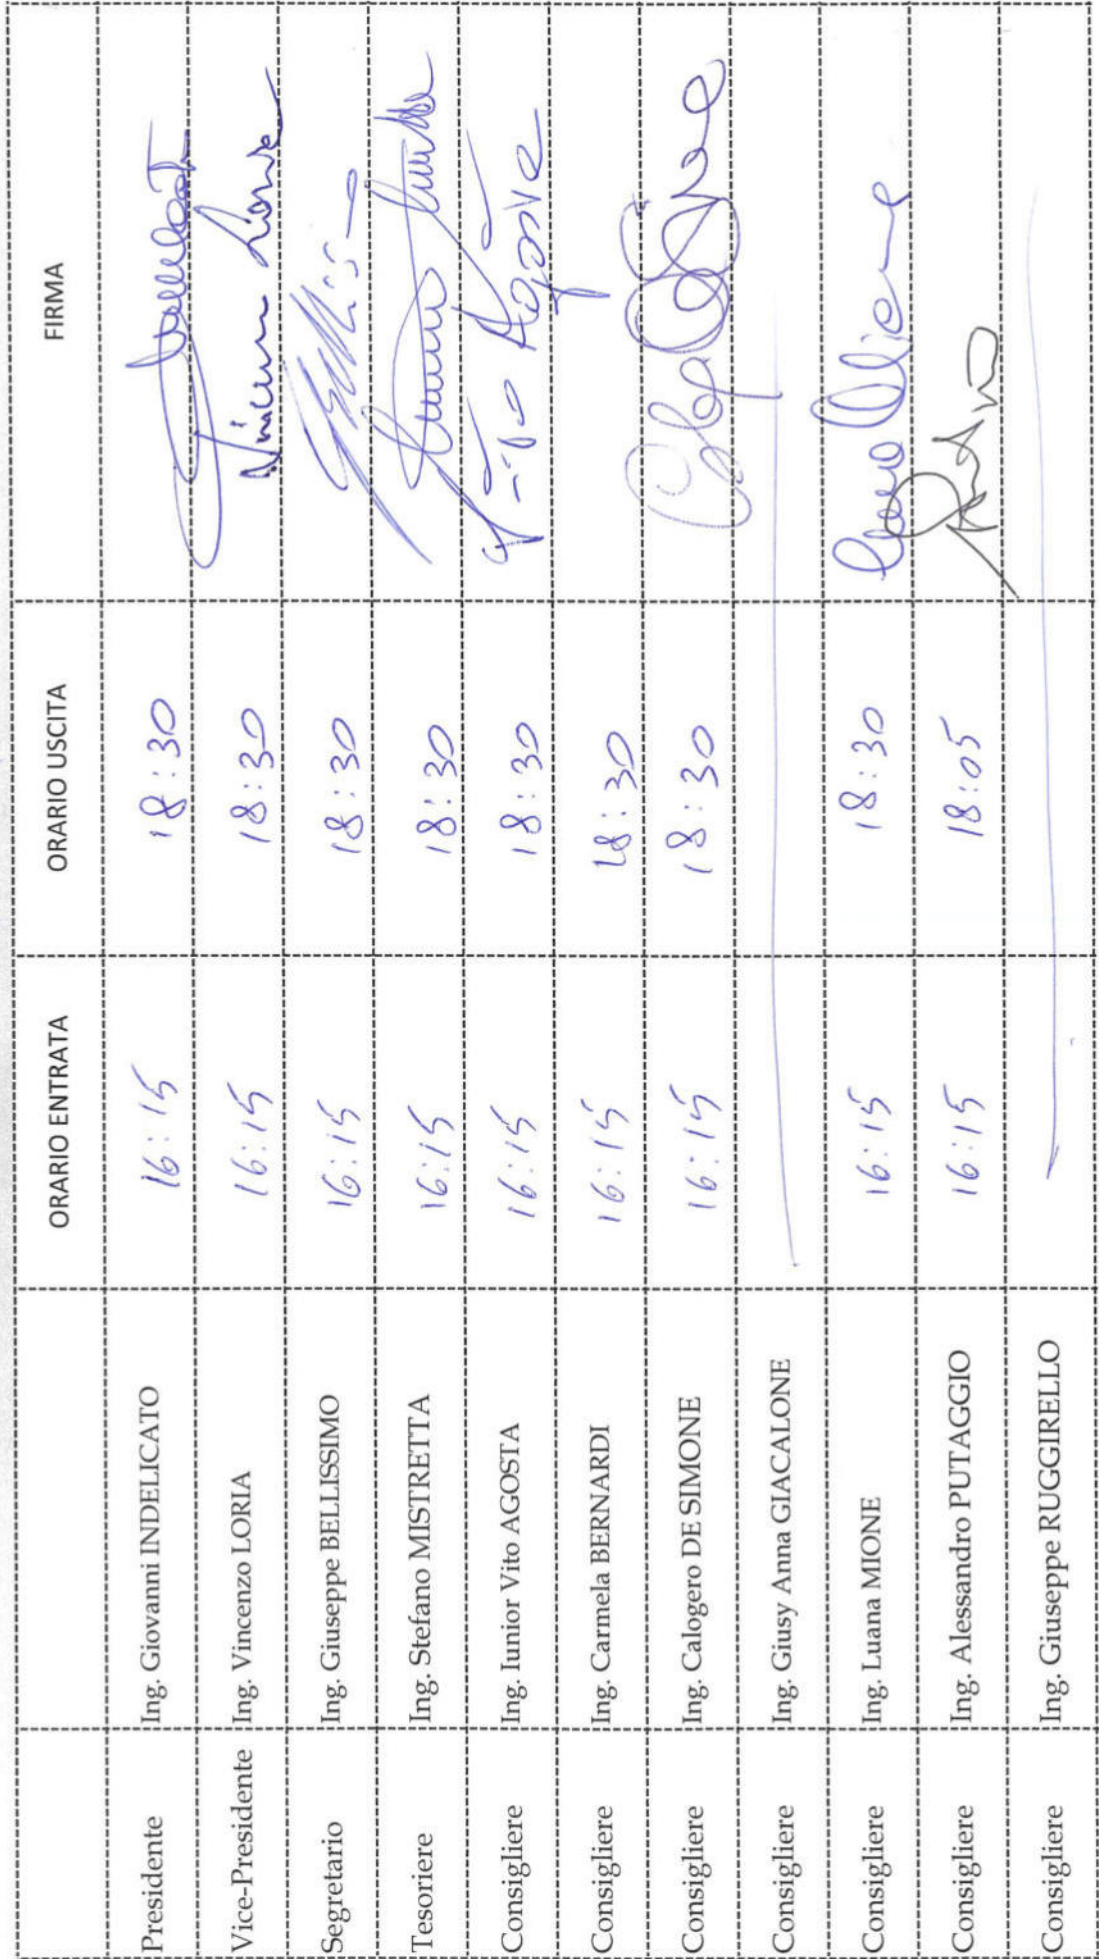 ORARIO ENTRATA ORARIO USCITA FIRMA
Presidente Ing. Giovanni INDELICATO 16:15 18:30
Vice-Presidente Ing. Vincenzo LORIA 16:15 18:30
Segretario Ing. Giuseppe BELLISSIMO 16:15 18:30
Tesoriere Ing. Stefano MISTRETTA 16:15 18:30
Consigliere Ing. Iunior Vito AGOSTA 16:15 18:30
Consigliere Ing. Carmela BERNARDI 16:15 18:30
Consigliere Ing. Calogero DE SIMONE 16:15 18:30
Consigliere Ing. Giusy Anna GIACALONE
Consigliere Ing. Luana MIONE 16:15 18:30
Consigliere Ing. Alessandro PUTAGGIO 16:15 18:05
Consigliere Ing. Giuseppe RUGGIRELLO